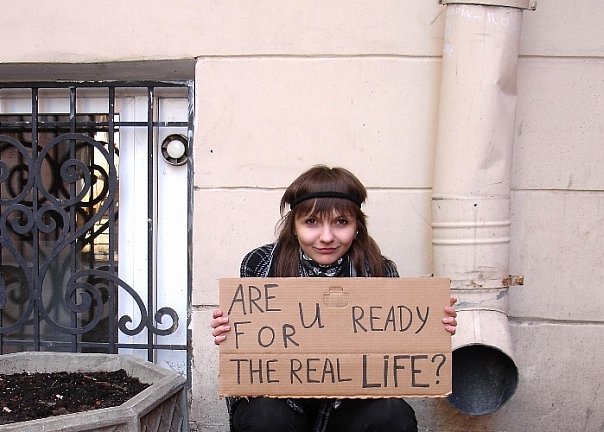 ARE U READY
FOR
THE REAL LiFE?